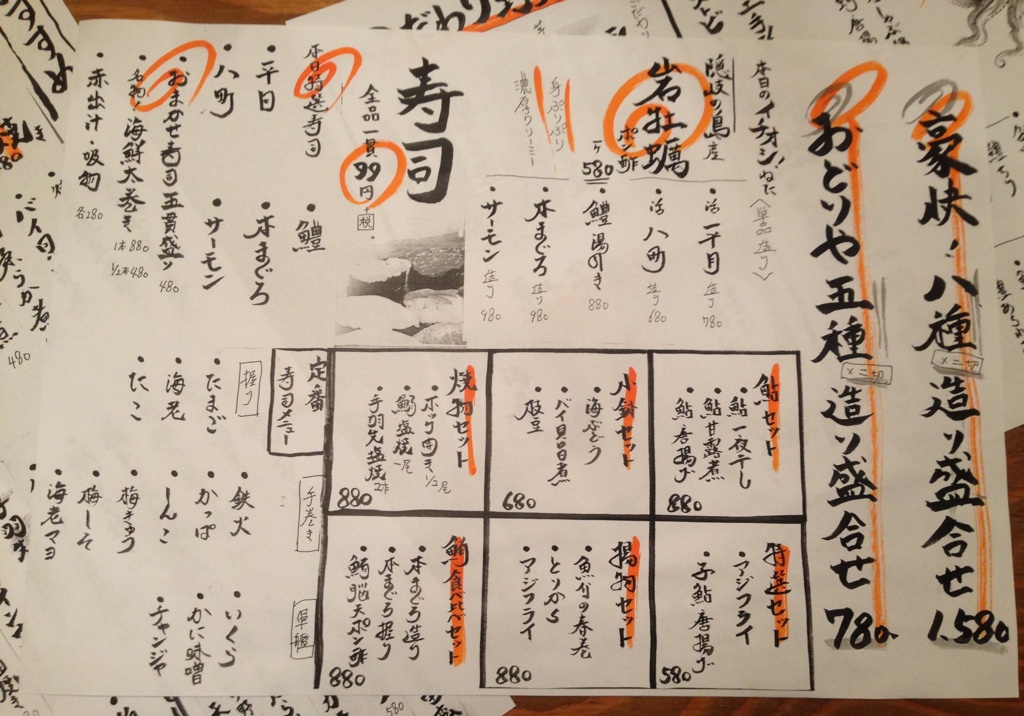 豪快!八種造り盛合せ 1.580
メニ切
おどりや五種造り盛合せ 780
メニ切
本日のイチオシ!ねた〈単品造り〉
隠岐の島産
岩牡蠣
ポン酢
ヶ580
身ぷりぷり
濃厚クリーミー
・活 平目 造り 780
・活 八町 造り 680
・鱧湯引き 880
・本まぐろ 造り 980
・サーモン 造り 980
寿司
全品一貫99円+税
本日特選寿司
・鱧
・平目
・本まぐろ
・八町
・サーモン
・おまかせ寿司五貫盛り 480
・名物 海鮮太巻き 1本880 1/2本480
・赤出汁・吸物 各280
鮎セット
・鮎一夜干し
・鮎甘露煮
・鮎唐揚げ
880
小鉢セット
・海ぶどう
・バイ貝旨煮
・枝豆
680
焼物セット
・ホッケ開き1/2尾
・鯛塩焼一尾
・手羽先塩焼2本
880
特選セット
・アジフライ
・子鮎唐揚げ
580
揚物セット
・魚介の春巻
・とりから
・アジフライ
880
鮪食べ比べセット
・本まぐろ造り
・本まぐろ握り
・鮪脳天ポン酢
880
定番
寿司メニュー
握り
・たまご
・海老
・たこ
手巻き
・鉄火
・かっぱ
・しんこ
・梅きゅう
・梅しそ
・海老マヨ
軍艦
・いくら
・かに味噌
・チャンジャ